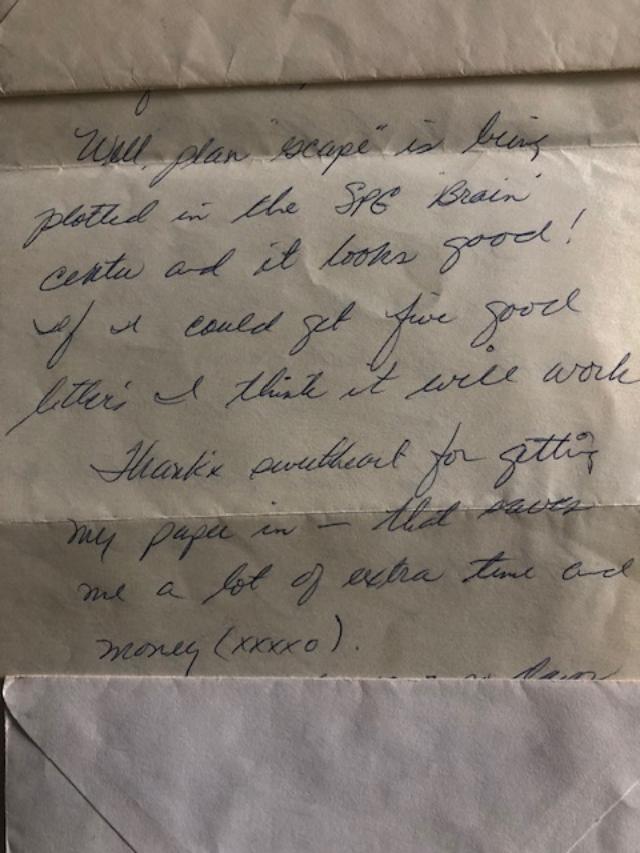 Well, plan "escape" is being
plotted in the SPG 'Brain'
center and it looks good!
If I could get five good
letters I think it will work
Thank'x sweetheart for getting
my paper in — that saves
me a lot of extra time and
money (xxxxo).